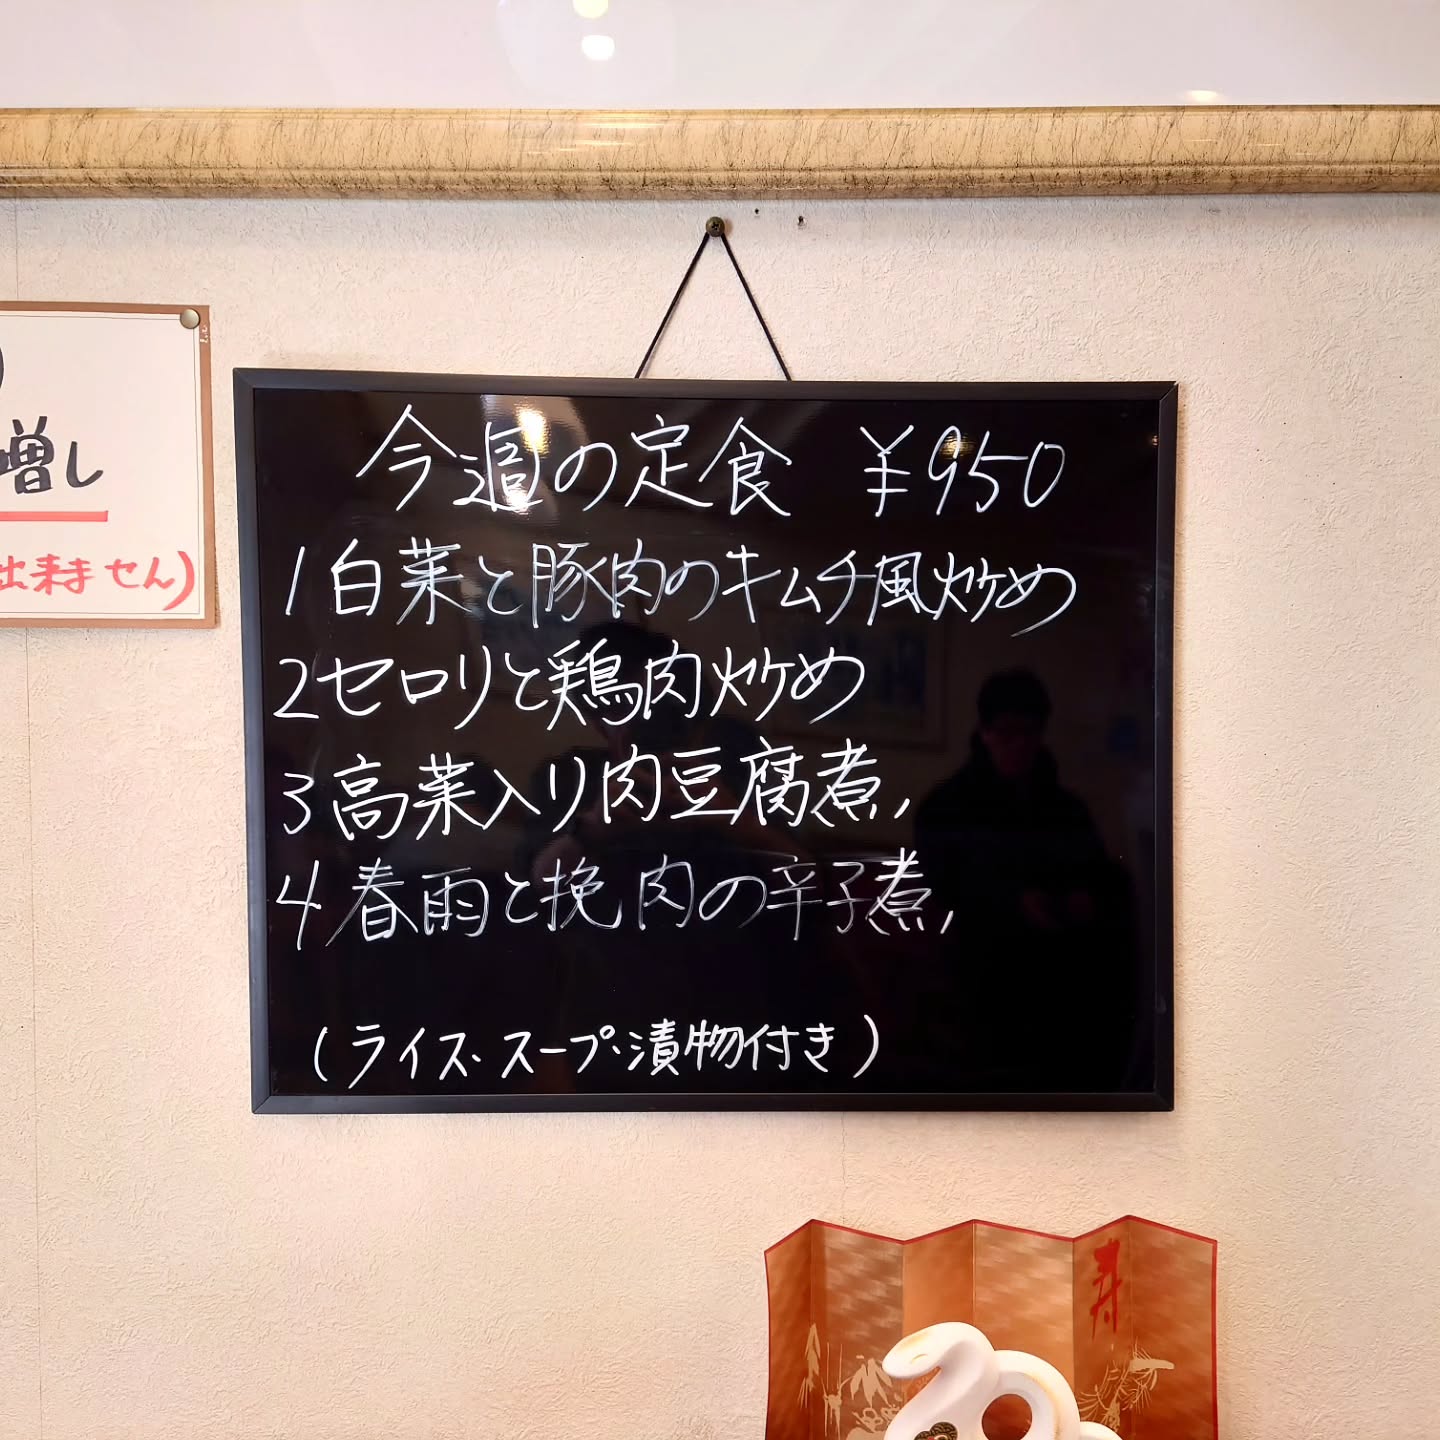 増し
出来ません)
今週の定食 ¥950
1白菜と豚肉のキムチ風炒め
2セロリと鶏肉炒め
3高菜入り肉豆腐煮,
4春雨と挽肉の辛子煮,
(ライス・スープ・漬物付き)
寿